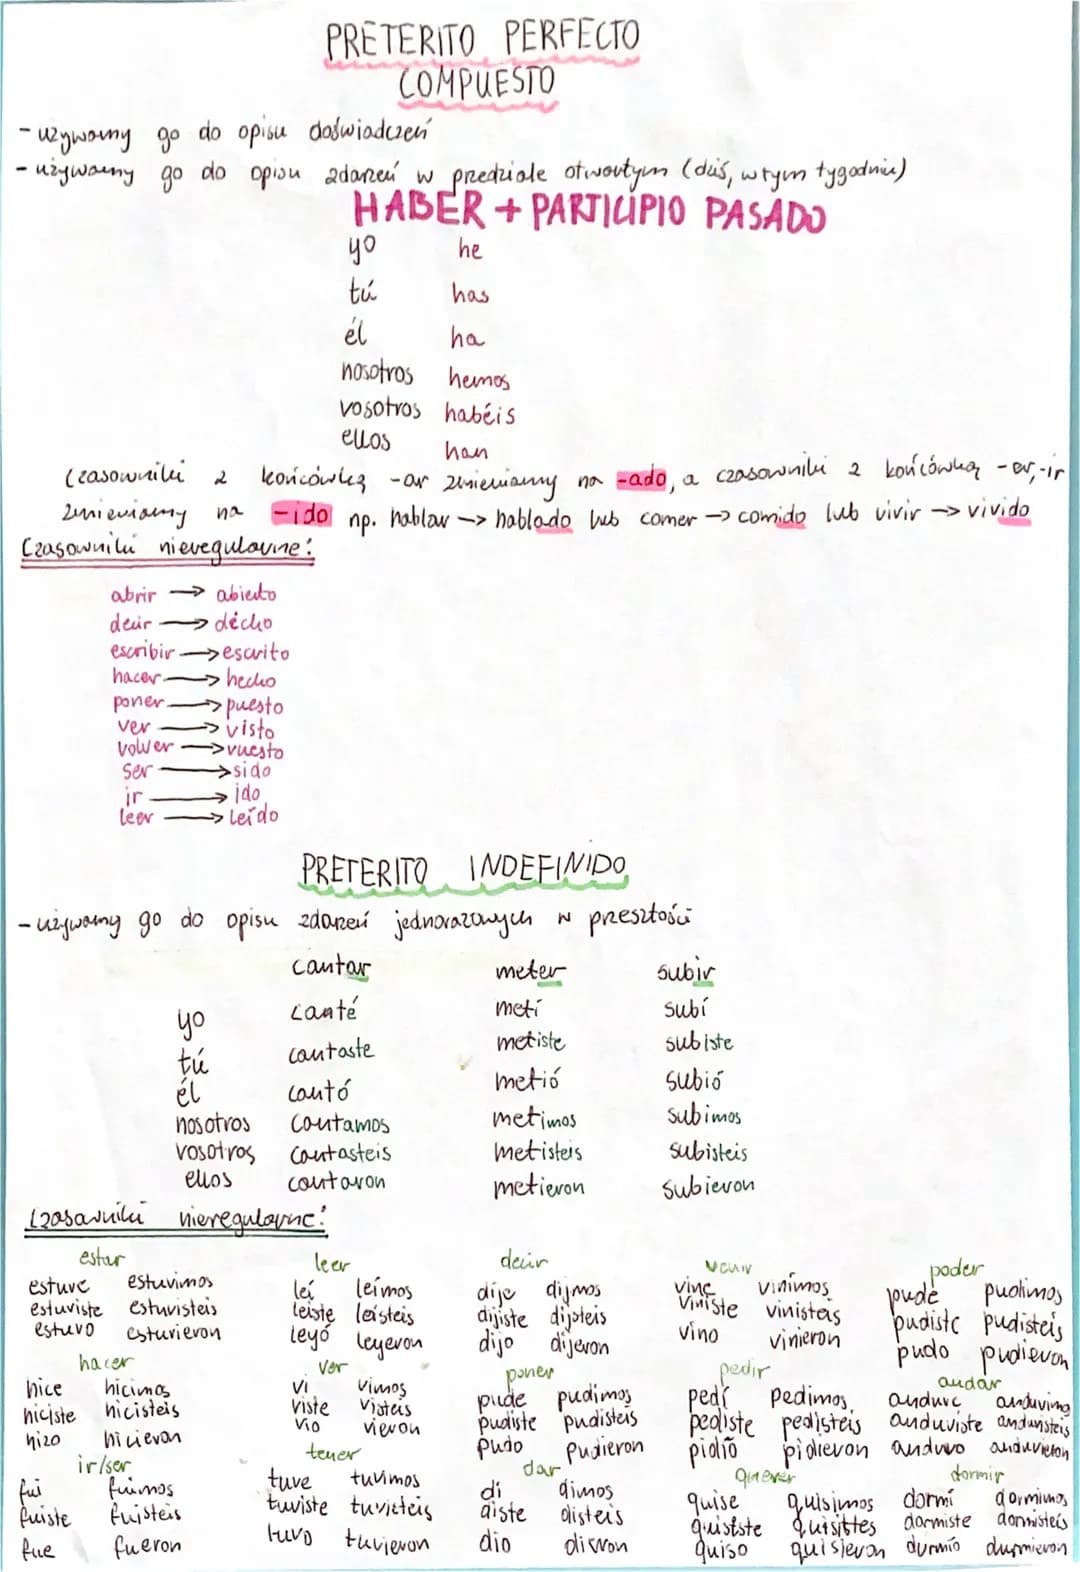 PRETERITO PERFECTO
COMPUESTO
- używamy go do opisu doświadczeń
- używamy go do opisu zdarzeń w przedziale otwartym (dziś, w tym tygodniu)
HABER + PARTICIPIO PASADO
yo he
tú has
él ha
nosotros hemos
vosotros habéis
ellos han
Czasowniki z końcówką -ar zmieniamy na -ado, a czasowniki z końcówką -er, -ir
zmieniamy na -ido np. hablar -> hablado lub comer -> comido lub vivir -> vivido
Czasowniki nieregularne:
abrir -> abierto
decir -> décho
escribir -> escrito
hacer -> hecho
poner -> puesto
ver -> visto
volver -> vuesto
ser -> sido
ir -> ido
leer -> leído
PRETERITO INDEFINIDO
- używamy go do opisu zdarzeń jednorazowych w przeszłości
cantar meter subir
yo canté metí subí
tú cantaste metiste subiste
él cantó metió subió
nosotros cantamos metimos subimos
vosotros cantasteis metisteis subisteis
ellos cantaron metieron subieron
Czasowniki nieregularne:
estar leer decir venir poder
estuve estuvimos leí leímos dije dijmos vine vinimos pude pudimos
estuviste estuvisteis leiste leísteis dijiste dijsteis viniste vinisteis pudiste pudisteis
estuvo esturieron leyó leyeron dijo dijeron vino vinieron pudo pudieron
hacer ver poner pedir andar
hice hicimos vi vimos pude pudimos pedí pedimos anduve anduvimo
hiciste hicisteis viste visteis pudiste pudisteis pediste pedisteis anduviste anduvisteis
hizo hicieron vio vieron pudo pudieron pidió pidieron anduvo anduvieron
ir/ser tener dar querer dormir
fui fuimos tuve tuvimos di dimos quise quisimos dormí dormimos
fuiste fuisteis tuviste tuvisteis diste disteis quisiste quisittes dormiste dormisteis
fue fueron tuvo tuvieron dio dieron quiso quisieron durmio durmieron